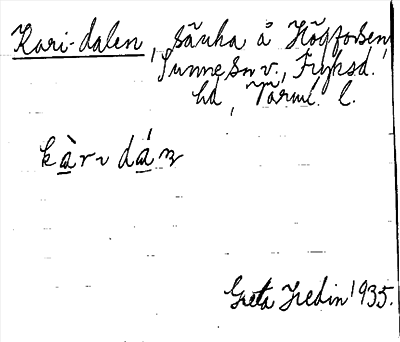 Kari-dalen, sänka å Högforsen,
Sunne sn v., Fryksd.
hd, Värml. l.
Greta Hedin 1935.